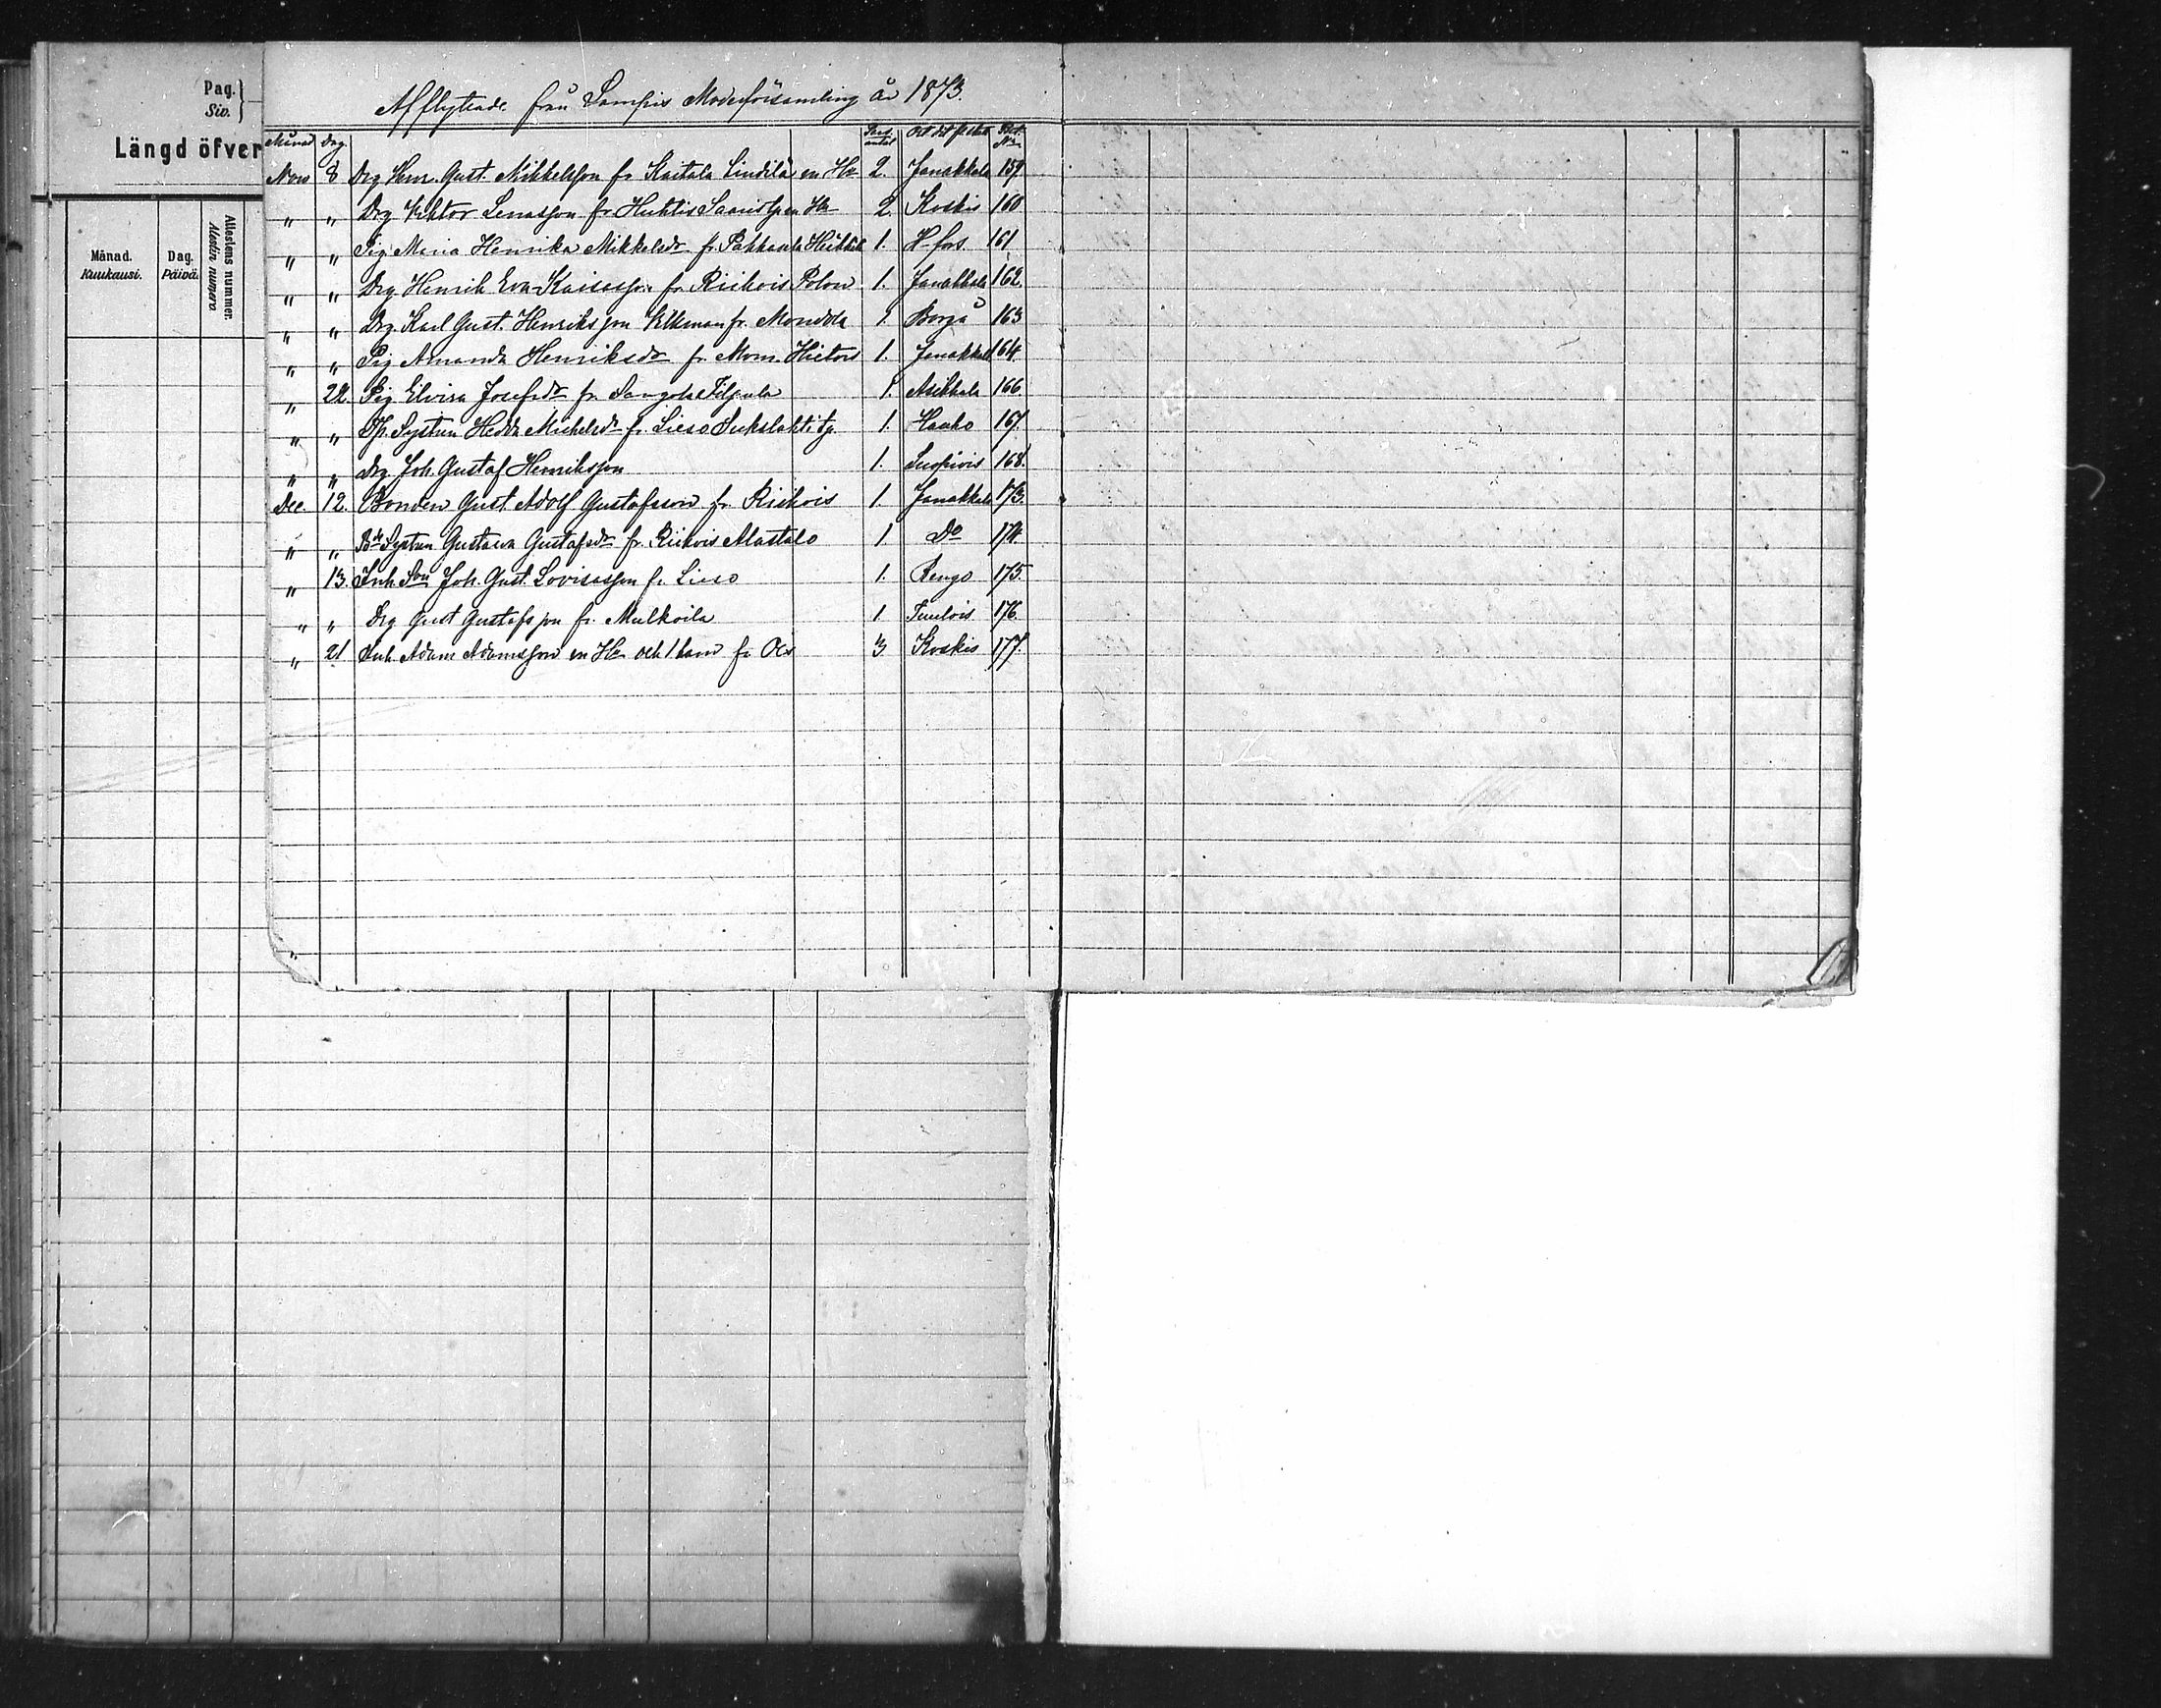 Pag.
Siv.
Längd öfver
Månad.
Kuukausi.
Dag.
Päivä.
Attestens nummer.
Alestin numero
Afflyttade från Lampis Moderförsamling år 1873.
Månad Dag
Nov 8 Drg Henr. Gust. Mikkelsson fr Kaitala Lindilä en Hu 2. Janakkala 159.
" " Drg Viktor Lenasson fr Huhtis en Hu 2. Koskis 160
" " Pig Maria Henrika Mikkelsdr fr. Pakkaula Heikkilä 1. H-fors 161
" " Drg Henrik Eva-Kaisasson fr. Riikois Polon 1. Janakkala 162.
" " Drg. Karl Gust. Henriksson fr. 1. Borgå 163
" " Pig Amanda Henriksdr fr. Mom. 1. Janakkala 164.
" 22. Pig Elvira Josefsdr fr. 1. Asikkala 166
" " Hedda Michelsdr fr. Lieso 1. Hauho 167.
" " Drg. Joh. Gustaf Henriksson 1. 168.
Dec. 12. Bonden Gust. Adolf Gustafsson fr. Riikois 1. Janakkala 173.
" " Gustava Gustafsdr fr. Riikois Alastalo 1. Do 174.
" 13. Inh. Son Joh. Gust. Lovisasson fr. Lieso 1. Rengo 175.
" " Drg Gust Gustafsson fr. Mulkoila 1 Tuulois 176.
" 21 Inh. Adam Adamsson en Hu och 1 barn fr. 3 Koskis 177.